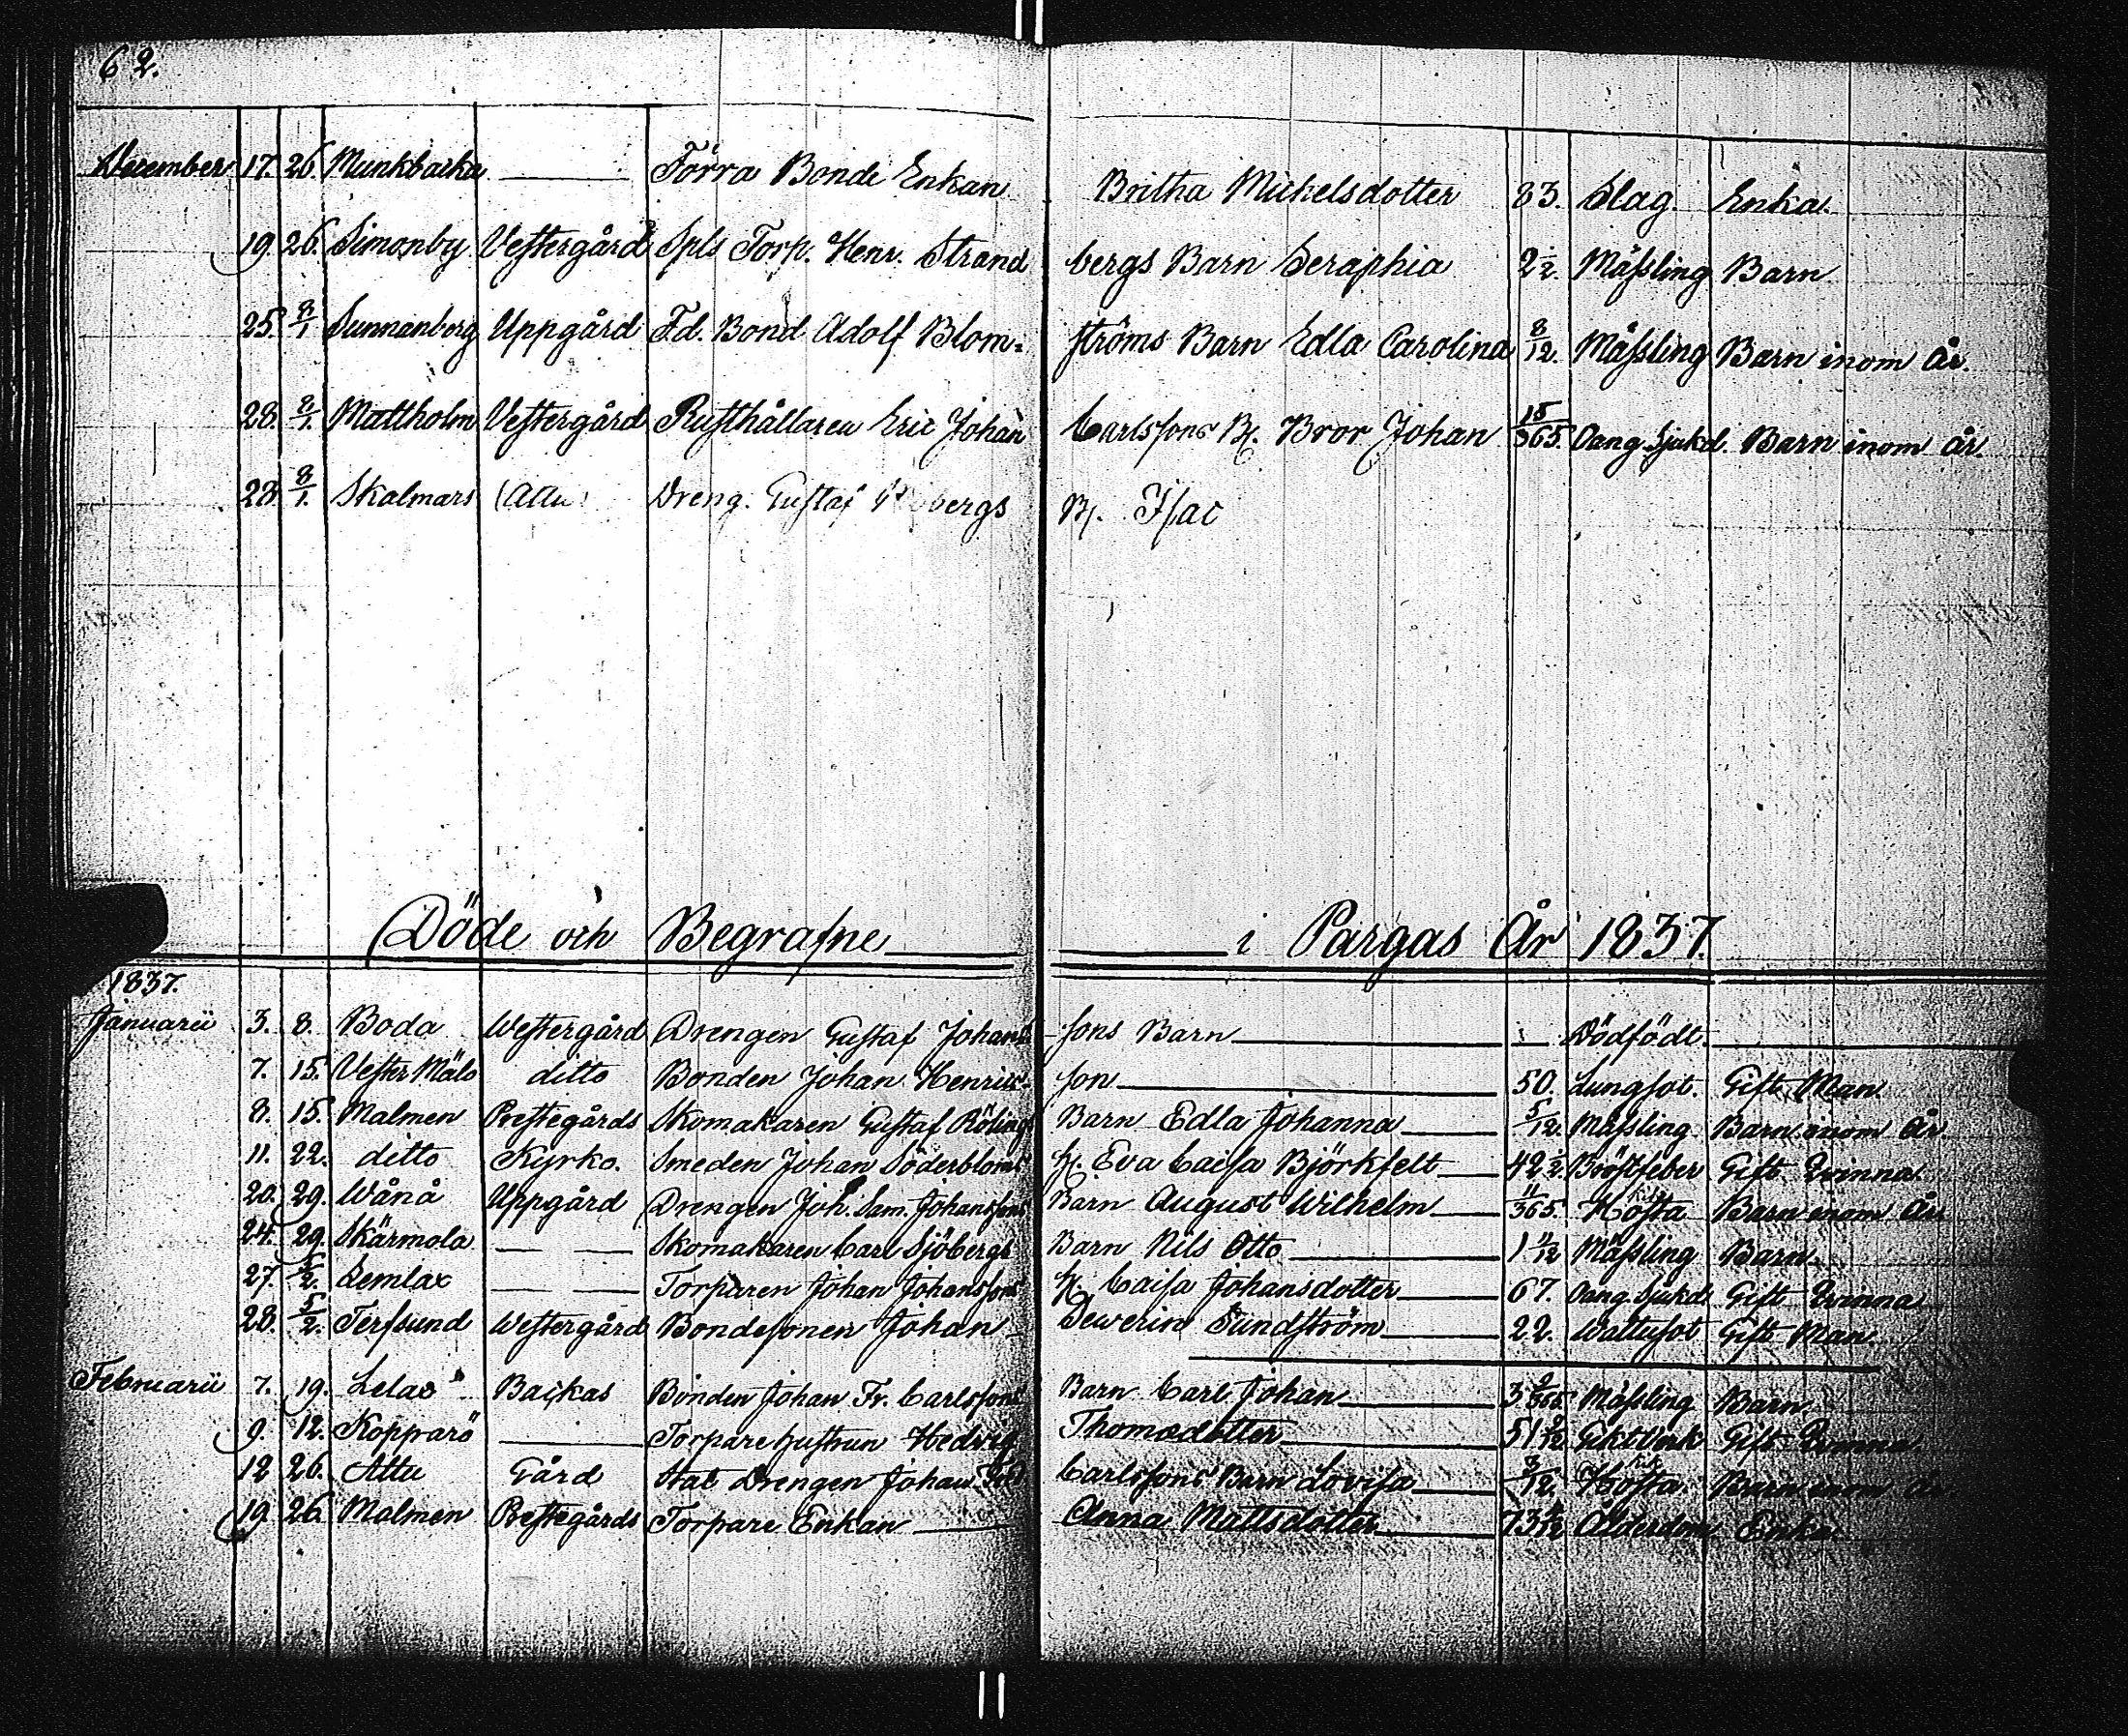 62.
December 17. 26. Munkbacka Förra Bonde Enkan Britha Michelsdotter 83. Slag. Enka.
19. 26. Simonby Vestergård Spls Torp. Henr. Strand bergs Barn Seraphia 2 1/2. Mässling Barn
25. 8/1 Sunnanberg Uppgård F.d. Bond Adolf Blom= ströms Barn Edla Carolina 8/12. Mässling Barn inom År.
28. 8/1. Mattholm Vestergård Rusthållaren Eric Johan Carlssons B. Bror Johan 15/365. Oang. Sjukd. Barn inom År.
28. 8/1. Skalmars (Attu) Dreng. Gustaf bergs B. Isac
Döde och Begrafne i Pargas År 1837.
1837.
Januarii 3. 8. Boda Westergård Drengen Gustaf Johans sons Barn Dödfödt
7. 15. Vester Mälo ditto Bonden Johan Henriks- son 50. Lungsot. Gift Man
8. 15. Malmen Prestegårds Skomakaren Gustaf Rölings Barn Edla Johanna 5/12. Mässling Barn inom År.
11. 22. ditto Kyrko. Smeden Johan Söderbloms H. Eva Caisa Björkfelt 42 1/2. Bröstfeber Gift Qvinna.
20. 29. Wånå Uppgård Drengen Joh. Sam. Johanssons Barn August Wilhelm 11/365. Hosta Barn inom År
24. 29. Skärmola Skomakaren Carl Sjöbergs Barn Nils Otto 1 11/12 Mässling Barn.
27. 5/2. Lemlax Torparen Johan Johanssons H. Caisa Johansdotter 67. Oang. Sjukd Gift Qvinna
28. 5/2. Terfsund Westergård Bondesonen Johan Sewerin Sundström 22. Wattusot Gift Man.
Februarii 7. 19. Lelax Backas Bonden Johan Fr. Carlssons Barn Carl Johan 3 Mässling Barn
9. 12. Kopparö Torpare hustrun Hedvig Thomedotter 51 Giktverk Gift Qvinna.
12 26. Attu Gård Stat Drengen Johan Fred. Carlssons Barn Lovisa 3/12. Hosta. Barn inom År
19. 26. Malmen Prestegårds Torpare Enkan Anna Mattsdotter 73 Ålderdom Enka.